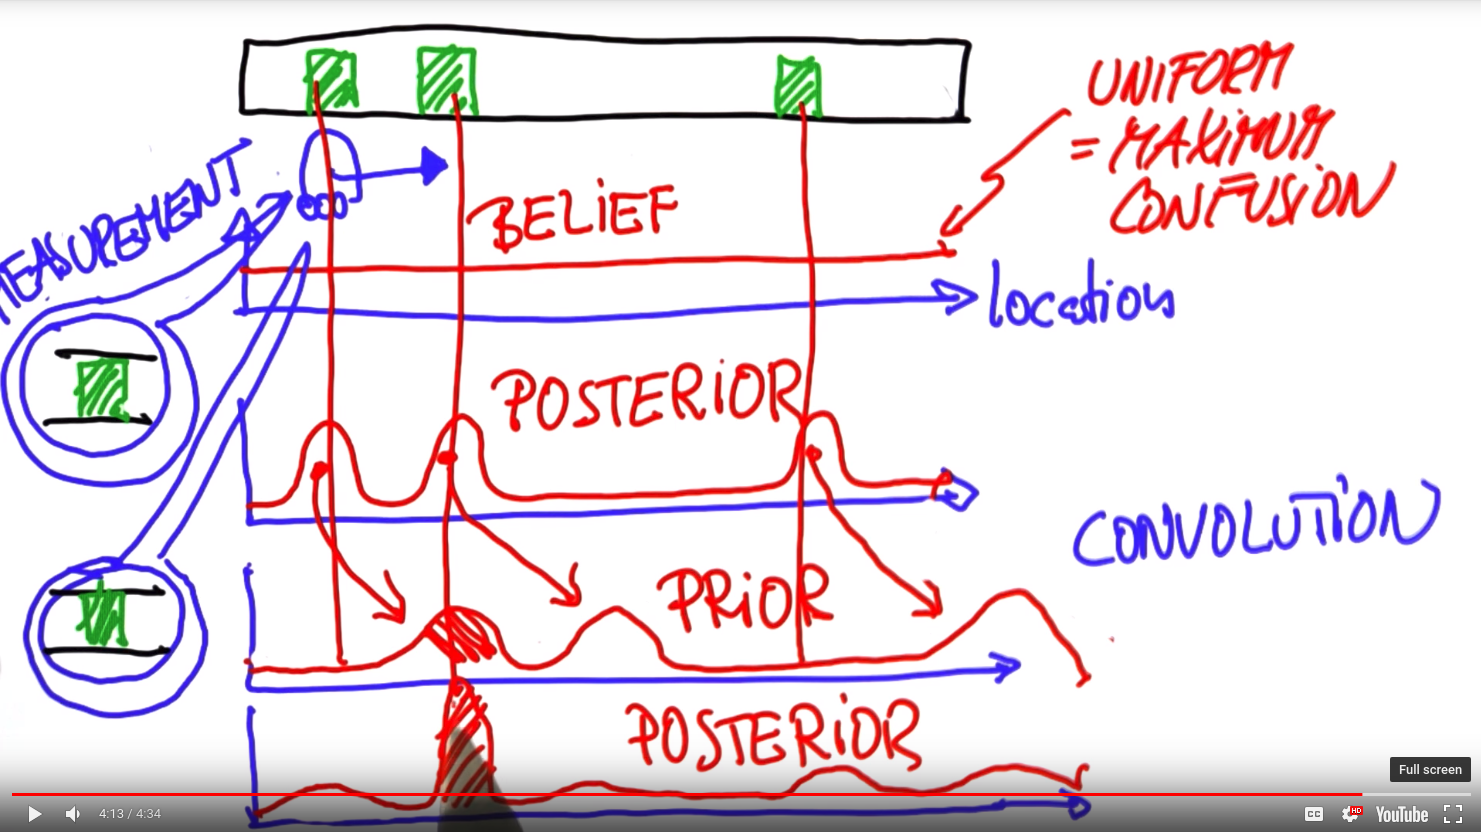 UNIFORM
= MAXIMUM
CONFUSION
MEASUREMENT
BELIEF
location
POSTERIOR
CONVOLUTION
PRIOR
POSTERIOR
Full screen
4:13 / 4:34
CC
HD
YouTube